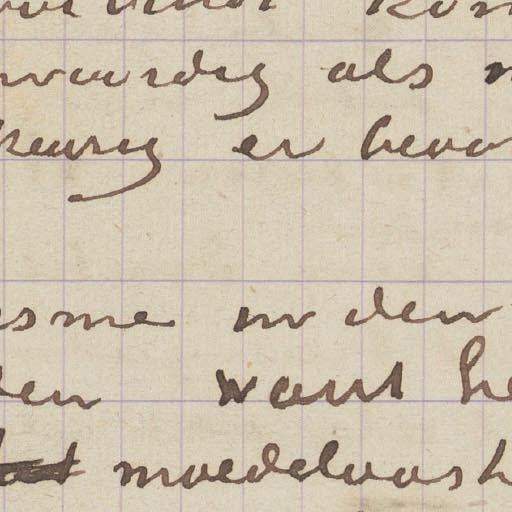 waardig als
keurig er bevo
sme in den
den want he
moedeloosh